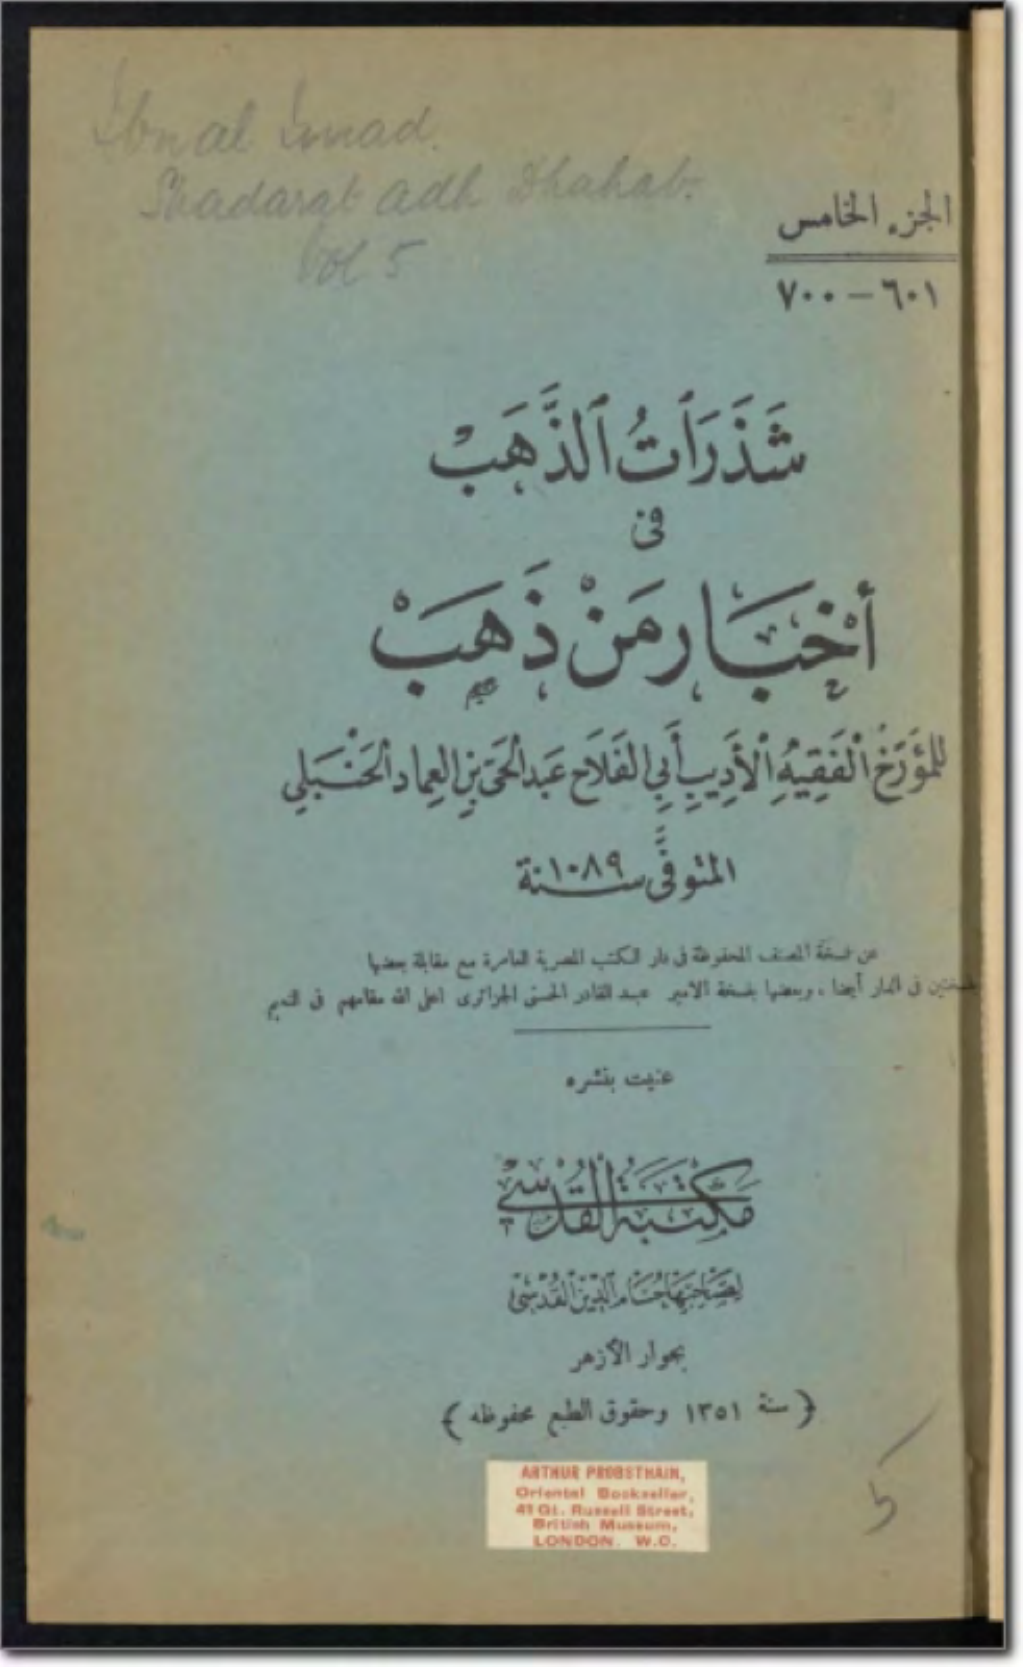 Ibn al Imad.
Shadarat adh Dhahab.
Vol 5
الجزء الخامس
٦٠١ – ٧٠٠
شَذَرَاتُ الذَّهَبْ
فى
أخْبَار مَنْ ذَهَبْ
للمؤَرخ الفَقِيهِ الأَدِيبِ أَبِي الفَلَاح عَبد الحَى بْنِ العِماد الحَنْبَلي
المتوفَّى سنة ١٠٨٩
عن نسخة المصنف المحفوظة فى دار الكتب المصرية العامرة مع مقابلة بعضها
بنسختين فى الدار أيضا ، وبعضها بنسخة الامير عبد القادر الحسنى الجزائرى اعلى الله مقامهم فى النعيم
عنيت بنشره
مكتبة القدسي
لصاحبها حسام الدين القدسي
بجوار الأزهر
( سنة ١٣٥١ وحقوق الطبع محفوظه )
ARTHUR PROBSTHAIN,
Oriental Bookseller,
41 Gt. Russell Street,
British Museum,
LONDON. W.C.
5